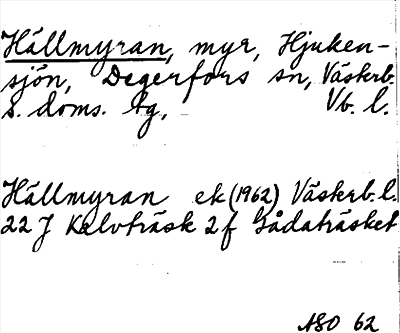 Hällmyran, myr, Hjuken-
sjön, Degerfors sn, Västerb.
s. doms. bg, Vb. l.
Hällmyran ek (1962) Västerb. l.
22 J Kalvträsk 2 f Gådaträsket
ASO 62